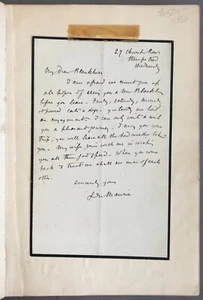 27 Church Row
Hampstead
Wednesday
My Dear Blackburn
I am afraid we must give up
all hopes of seeing you & Mrs Blackburn
before you leave. Friday, Saturday,
we have
an engagement. I can only wish you
a pleasant journey. I envy you your
trip; you will leave all the bad weather behind
you. My wife joins with me in wishing
you all them good speed. When you come
back I trust we shall see more of each
other.
Sincerely yours
Du Maurier